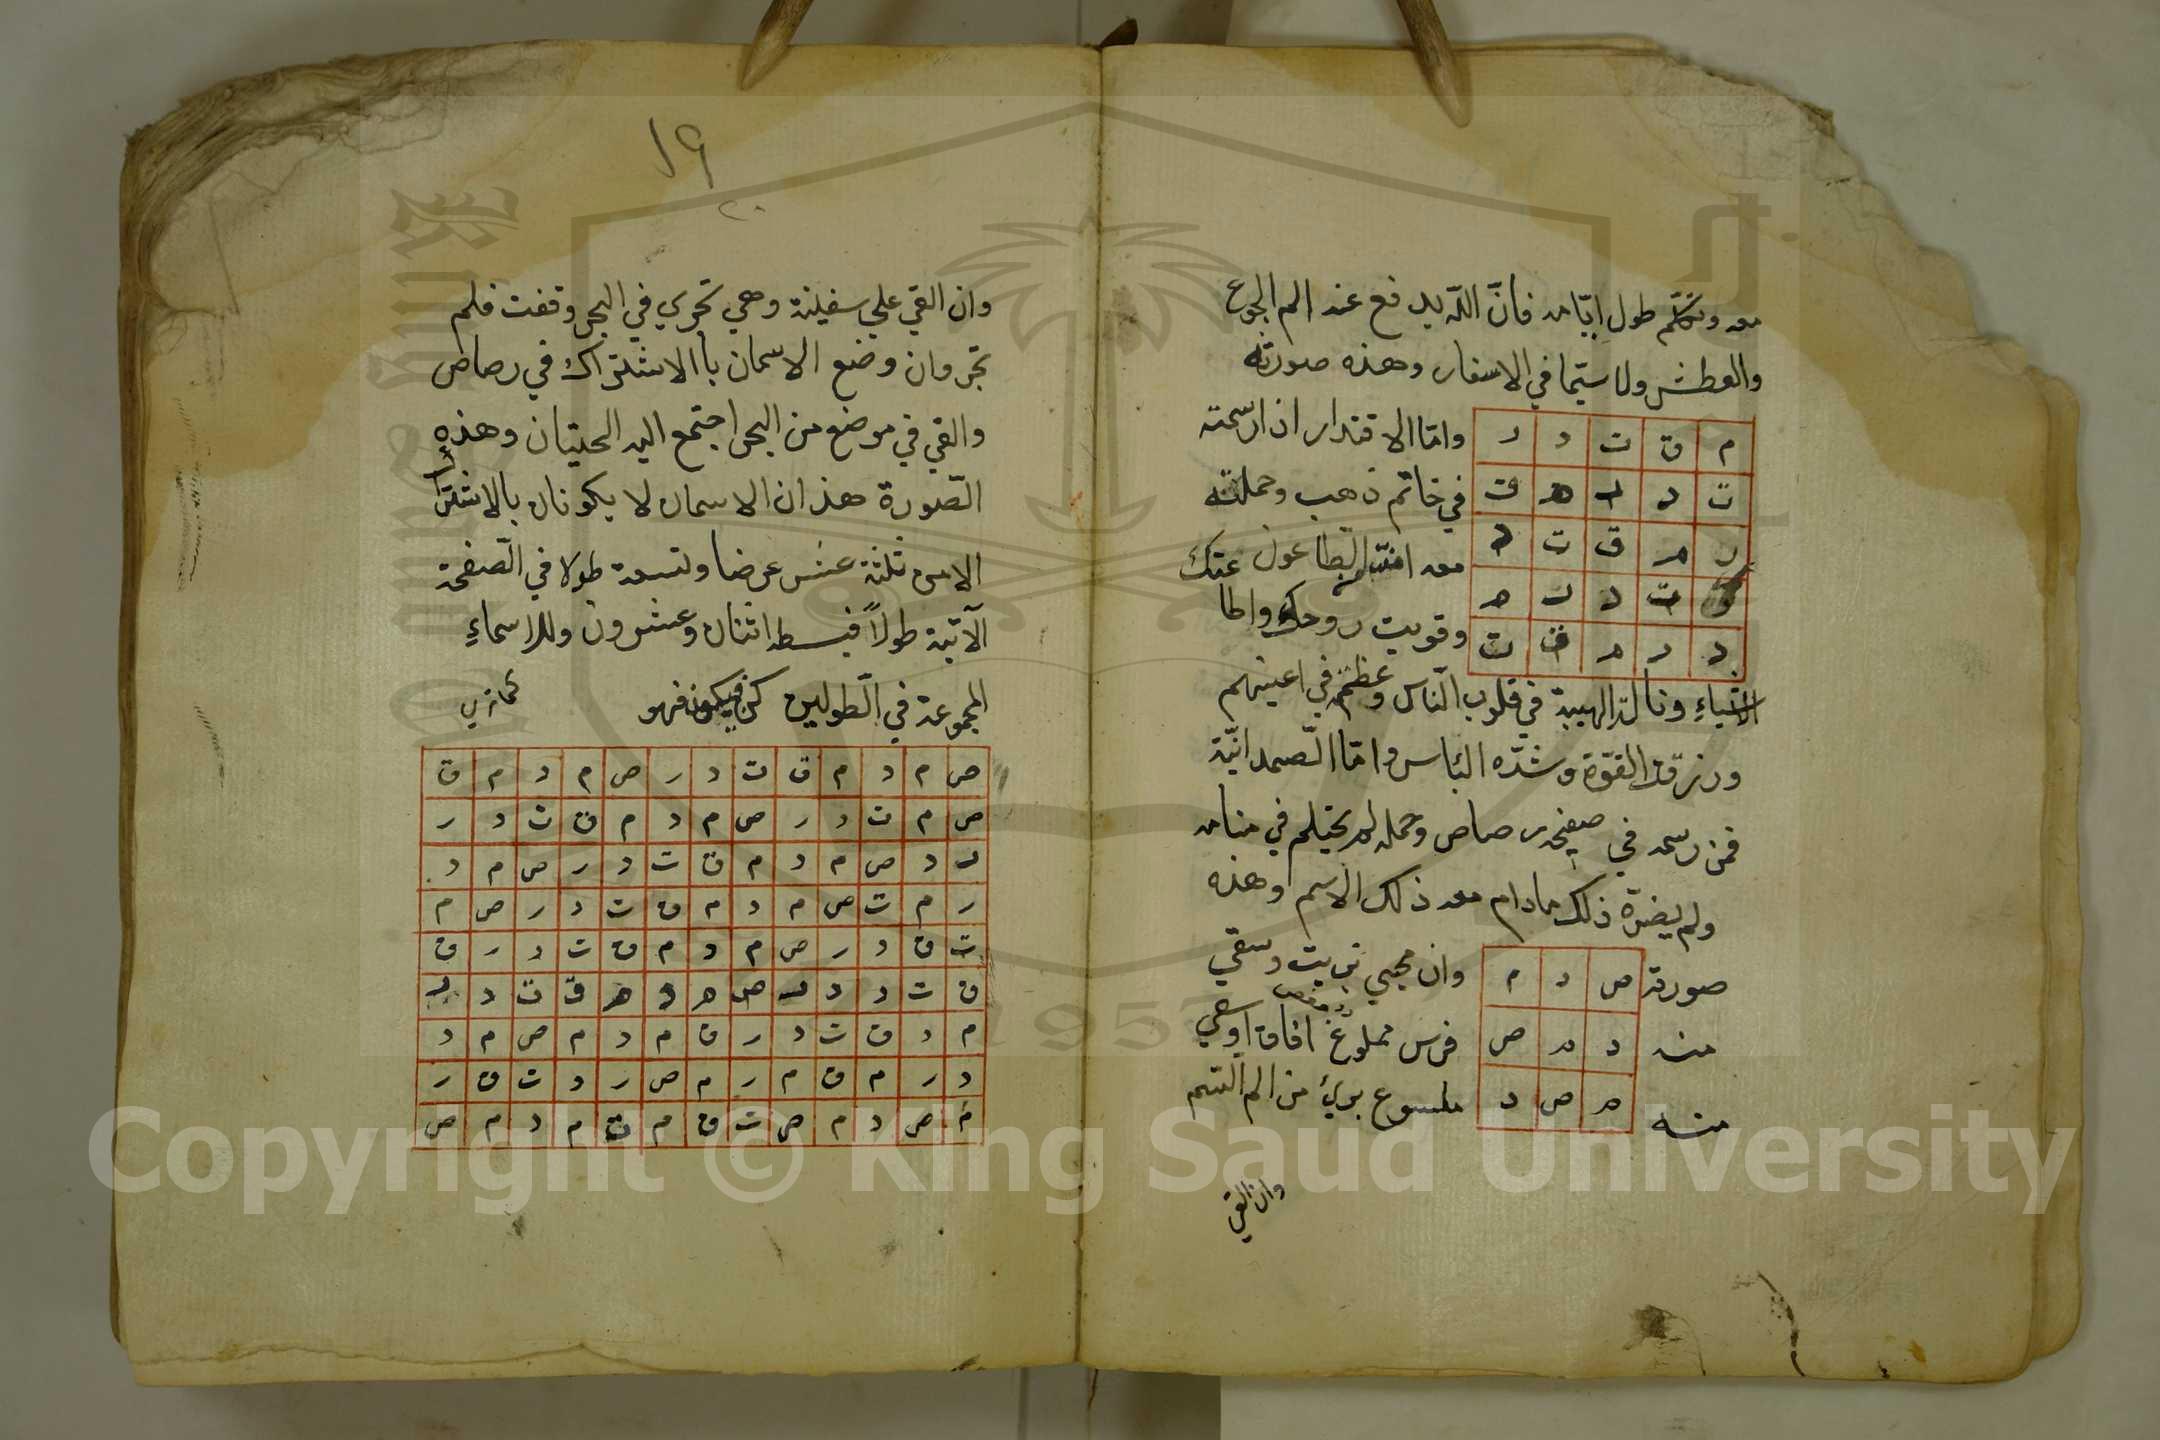 معه وتكلم طول ايامه فان الله يدفع عنه الم الجوع
والعطش ولا سيما في الاسفار وهذه صورته
واما الاقتدار اذا رسمته
م ق ت د ر
في خاتم ذهب وحملته
ت د ر م ق
معه الطاعون عنك
ر م ق ت د
وقويت روحك واطا
ق ت د ر م
د ر م ق ت
الاشياء ونالته الهيبة في قلوب الناس وعظم في اعينهم
ورزقت القوة وشده الباس واما الصمدانية
فمن رسمه في صفيحه رصاص وحمله لم يحتلم في منامه
ولم يضره ذلك مادام معه ذلك الاسم وهذه
صورته
ص د م
وان محي بزيت وسقي
منه
د م ص
فرس مملوغ افاق اوسقي
منه
م ص د
ملسوع بري من الم السم
وان القي
١٩
٢٠
وان القي على سفينة وهي تجري في البحر وقفت فلم
تجر وان وضع الاسمان باالاشتراك في رصاص
والقي في موضع من البحر اجتمع اليه الحيتان وهذه
الصورة هذان الاسمان لا يكونان بالاشتراك
الامن ثلثة عشر عرضا وتسعة طولا في الصفحة
الاتية طولاً فبسطه اثنان وعشرون وللاسماء
المجموعة في الطولين كن فيكون فهو
ص م د م ق ت د ر ص م د م ق
ص م ت د ر ص م د م ق ت د ر
ر د ص م د م ق ت د ر ص م د
ر م ت ص م د م ق ت د ر ص م
ت ق د ر ص م د م ق ت د ر ق
ق ت د د ر ص م د م ق ت د ر
م د ق ت د ر ق م د م ص م د
د ر م ق م ر م ص ر د ت ق ر
م ص د م ص ت ق م ق م د م ص
Copyright © King Saud University
1957